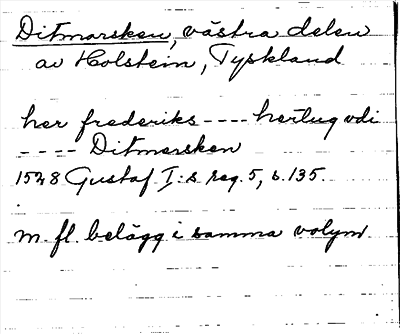 Ditmarsken, västra delen
av Holstein, Tyskland
her frederiks ---- hertug vdi
---- Ditmersken
1528 Gustaf I:s reg. 5, s. 135.
m. fl. belägg i samma volym.